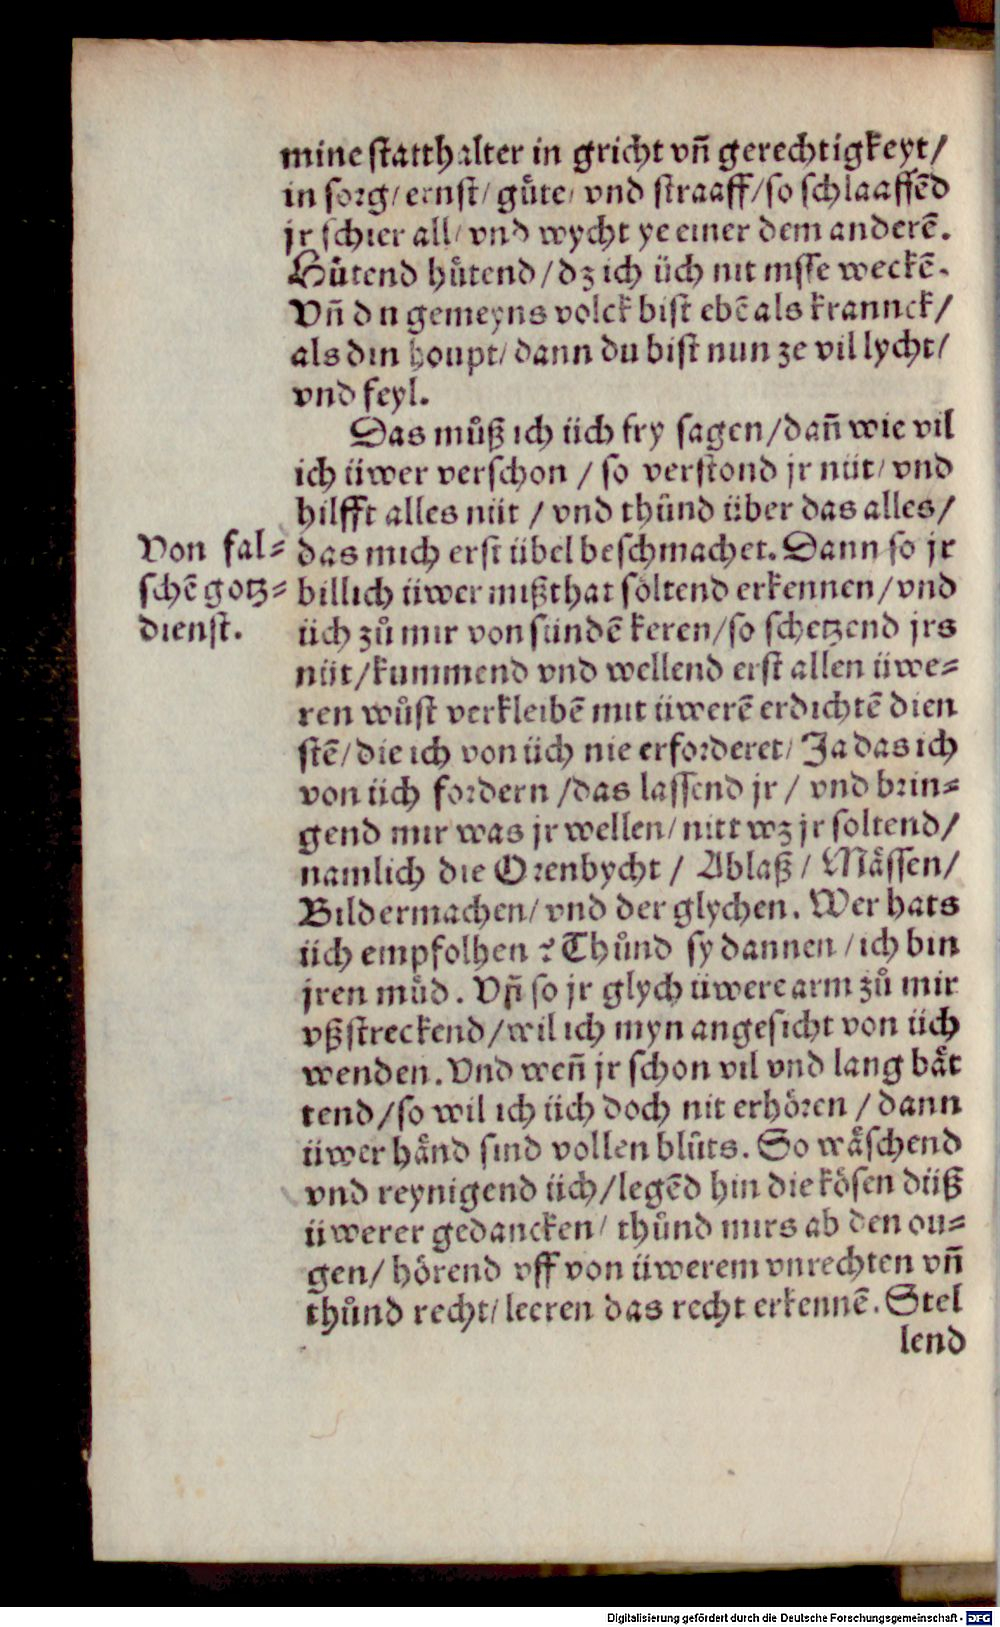 mine statthalter in gricht vñ gerechtigkeyt/
in sorg/ ernst/ guͤte/ vnd straaff/ so schlaaffẽd
jr schier all/ vnd wycht ye einer dem anderẽ.
Huͤtend huͤtend/ dz ich üch nit müsse weckẽ.
Vñ din gemeyns volck bist ebẽ als kranck/
als din houpt/ dann du bist nun ze vil lycht/
vnd feyl.
Das muͦß ich üch fry sagen/ dañ wie vil
ich üwer verschon / so verstond jr nüt/ vnd
hilfft alles nüt / vnd thuͦnd über das alles/
Von fal=
schẽ gotz=
dienst.
das mich erst übel beschmachet. Dann so jr
billich üwer mißthat söltend erkennen/ vnd
üch zuͦ mir von sündẽ keren/ so schetzend jrs
nüt/ kummend vnd wellend erst allen üwe=
ren wuͦst verkleibẽ mit üwerẽ erdichtẽ dien
stẽ/ die ich von üch nie erforderet/ Ja das ich
von üch fordern /das lassend jr / vnd brin=
gend mir was jr wellen/ nitt wz jr soltend/
namlich die Orenbycht / Ablaß / Mässen/
Bildermachen/ vnd der glychen. Wer hats
üch empfolhen ? Thuͦnd sy dannen / ich bin
jren muͤd. Vñ so jr glych üwere arm zuͦ mir
vßstreckend/ wil ich myn angesicht von üch
wenden. Vnd weñ jr schon vil vnd lang bät
tend/ so wil ich üch doch nit erhören / dann
üwer händ sind vollen bluͦts. So wäschend
vnd reynigend üch/ legẽd hin die kösen düß
üwerer gedancken/ thuͦnd mirs ab den ou=
gen/ hörend vff von üwerem vnrechten vñ
thuͦnd recht/ leeren das recht erkennẽ. Stel
lend
Digitalisierung gefördert durch die Deutsche Forschungsgemeinschaft - DFG